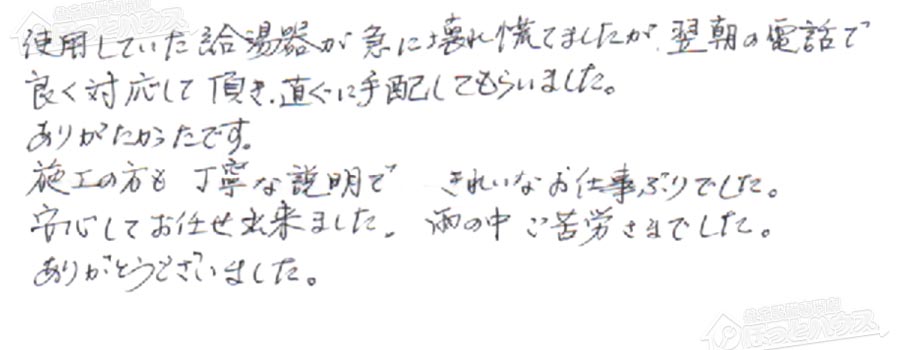 使用していた給湯器が急に壊れ慌てましたが、翌朝の電話で
良く対応して頂き、直ぐに手配してもらいました。
ありがたかったです。
施工の方も丁寧な説明で きれいなお仕事ぶりでした。
安心してお任せ出来ました。雨の中ご苦労さまでした。
ありがとうございました。
ほっとハウス